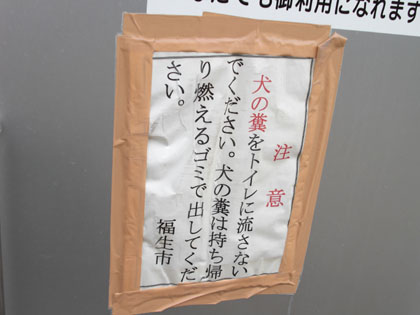 なたでも御利用になれます
注意
犬の糞をトイレに流さない
でください。犬の糞は持ち帰
り燃えるゴミで出してくだ
さい。
福生市